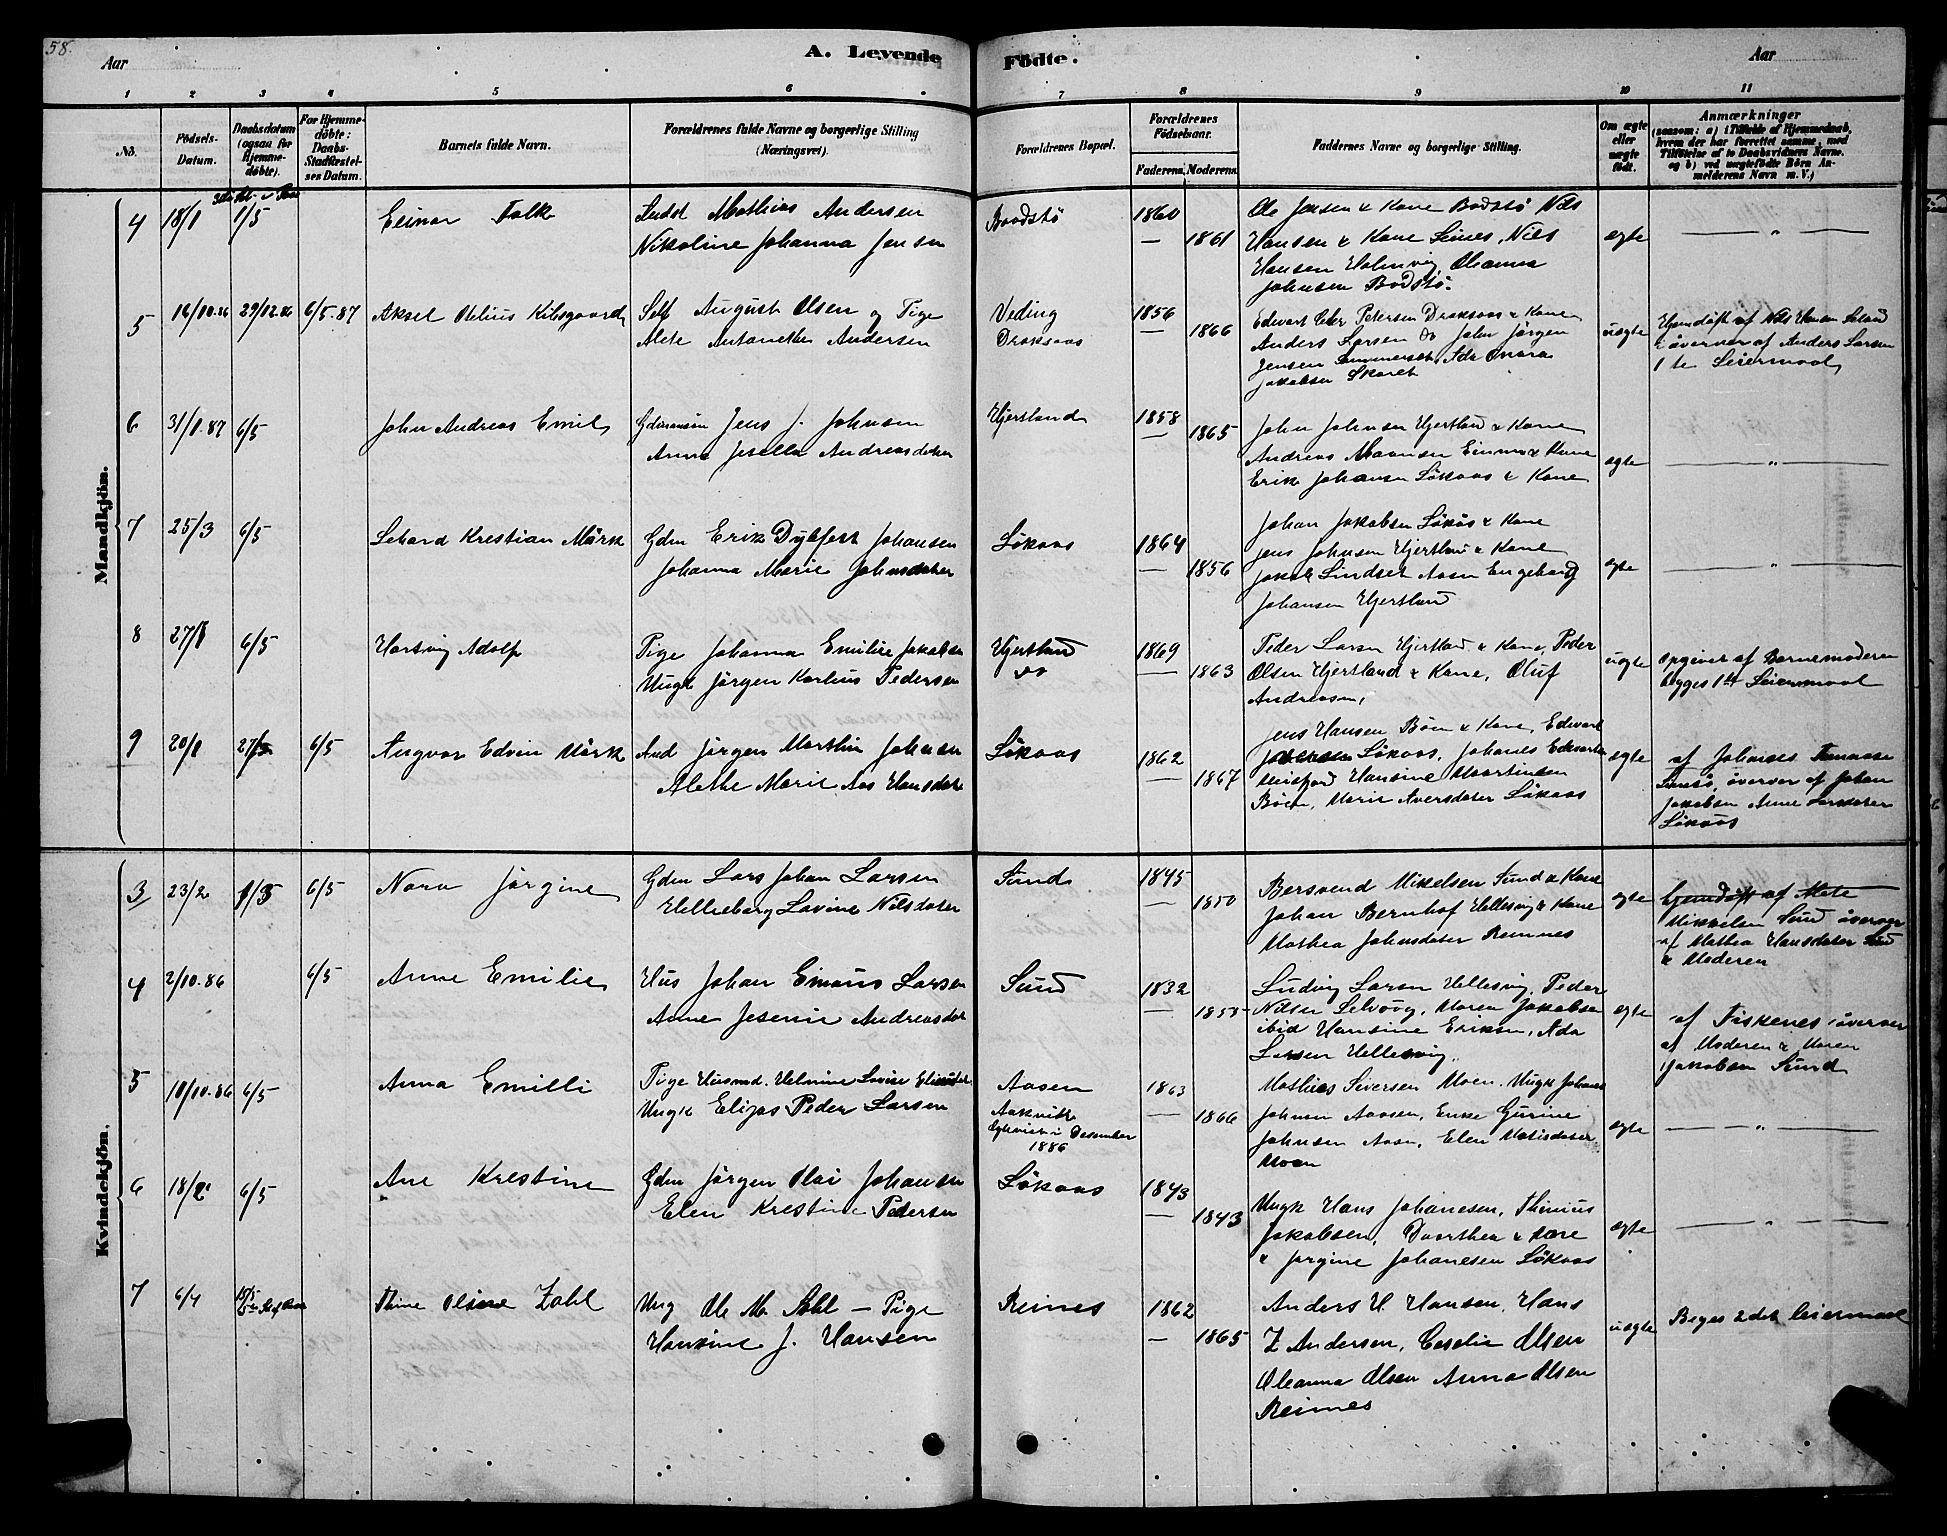 58.
Aar
A. Levende Födte.
Aar
1 2 3 4 5 6 7 8 9 10 11
No. Födsels-Datum. Daabsdatum (ogsaa for Hjemmedöbte). For Hjemmedöbte: Daabs-Stadfæstelses Datum. Barnets fulde Navn. Forældrenes fulde Navne og borgerlige Stilling (Næringsvei). Forældrenes Bopæl. Forældrenes Födselsaar. Faderens. Moderens. Faddernes Navne og borgerlige Stilling. Om ægte eller uægte födt. Anmærkninger (saasom: a) i Tilfælde af Hjemmedaab, hvem der har forrettet samme, med Tilföielse af to Daabsvidners Navne, og b) ved uægtefödte Börn Anmelderens Navn m. V.)
Mandkjön.
4 18/1 1/5 Einar Falk
Mathias Andersen
Nikoline Johanna Jensen
Bodstö 1860 1861
Ole Jensen & Kone Bodstö Nils
Hansen & Kone Seines, Nils
Hansen Holmvig, Oleanna
Johnsen Bodstö.
ægte — " —
5 16/10.86 29/12.86 6/5.87 Aksel Otelius Kibsgaard
Self August Olsen og Pige
Alete Antonette Andersen
Veding
Draksaas
1856 1866
Edvart Peter Petersen Draksaas & Kone
Anders Larsen do John Jörgen
Jensen Sammerset, Ada Mara
Jakobsen Skaret
uægte
Hjemdöft af Nils Hansen
overvær af Anders Larsen
1te Leiermaal
6 31/1.87 6/5 John Andreas Emil
Jens J. Johnsen
Anna Jesella Andreasdatter
Hjertland 1858 1865
John Johnsen Hjertland & Kone
Andreas Maansen & Kone
Erik Johansen Lökaas & Kone
ægte — " —
7 25/3 6/5 Sehard Krestian Mörk
Gdm Erik Dybfest Johansen
Johanna Marie Johnsdatter
Lökaas 1864 1856
Johan Jakobsen Lökås & Kone
Jens Johnsen Hjertland & Kone
Jakob Lindset Aasen Engeborg
Johansen Hjertland
ægte — " —
8 27/1 6/5 Hartvig Adolf
Pige Johanna Emilie Jakobsen
Ungk Jörgen Karlius Pedersen
Hjertland
do
1869 1863
Peder Larsen Hjertland & Kone, Peder
Olsen Hjertland & Kone, Oluf
Andreasen,
uægte
Opgiver af Barnemoderen
begges 1te Leiermaal
9 20/1 27/3 6/5 Angvar Edvin Mörk
Jörgen Marthin Johnsen
Alethe Marie Aas Hansdater
Lökaas 1862 1867
Jens Hansen Böen & Kone, Edvart
Lökaas, Johanes Edvartsen
Misfjord Hansine Martinsen
Böen, Marie Aversdater Lökaas
ægte
af Johanes
overvær af Johan
Jakobsen Anne Larsdater
Lökaas
Kvindekjön.
3 23/2 1/3 6/5 Nora Jörgine
Gdm Lars Johan Larsen
Ellleberg Lovine Nilsdater
Sund 1845 1850
Bersvend Mikelsen Sund & Kone
Johan Bernhof Hellesvig & Kone
Mathea Johnsdater Reinnes
ægte
hjemdöft af Mete
Mikkelsen Sund overvær
af Mathea Hansdater Sund
& Moderen
4 2/10.86 6/5 Anne Emilie
Hus Johan Emaus Larsen
Anne Jeserie Andreasdat
Sund 1832 1850
Ludvig Larsen Hellesvig, Peder
Nilsen Selvaag, Maren Jakobsen
ibid Hansine Eriksen, Ada
Larsen Hellesvig.
ægte
af Fiskenes overvær
af Moderen & Maren
Jakobsen Sund
5 10/10.86 6/5 Anna Emilli
Pige Husmd. Helmine Lovise
Ungk Elias Peder Larsen
Aasen
Aakvik
Egteviet i Desember
1886
1863 1866
Mathias Seversen Moen. Ungk Johan
Johnsen Aasen, Enke Gurine
Johnsen Aasen, Elen Matisdater
Moen
ægte — " —
6 18/2 6/5 Ane Krestine
Gdm Jörgen Olai Johansen
Elen Krestine Pedersen
Lökaas 1843 1843
Ungk Hans Johanesen, Thinius
Jakobsen, Dorthea & Kone
& Jorgine Johanesen Lökaas
ægte — " —
7 6/4 15/5 Thine Olsine Zahl
Ung Ole M. Zahl — Pige
Hansine J. Hansen
Reines 1862 1865
Anders H. Hansen, Hans
Z Andersen, Ceselie Olsen
Oleanna Olsen Anna Olsen
Reines
uægte
Beges 2det leiermaal